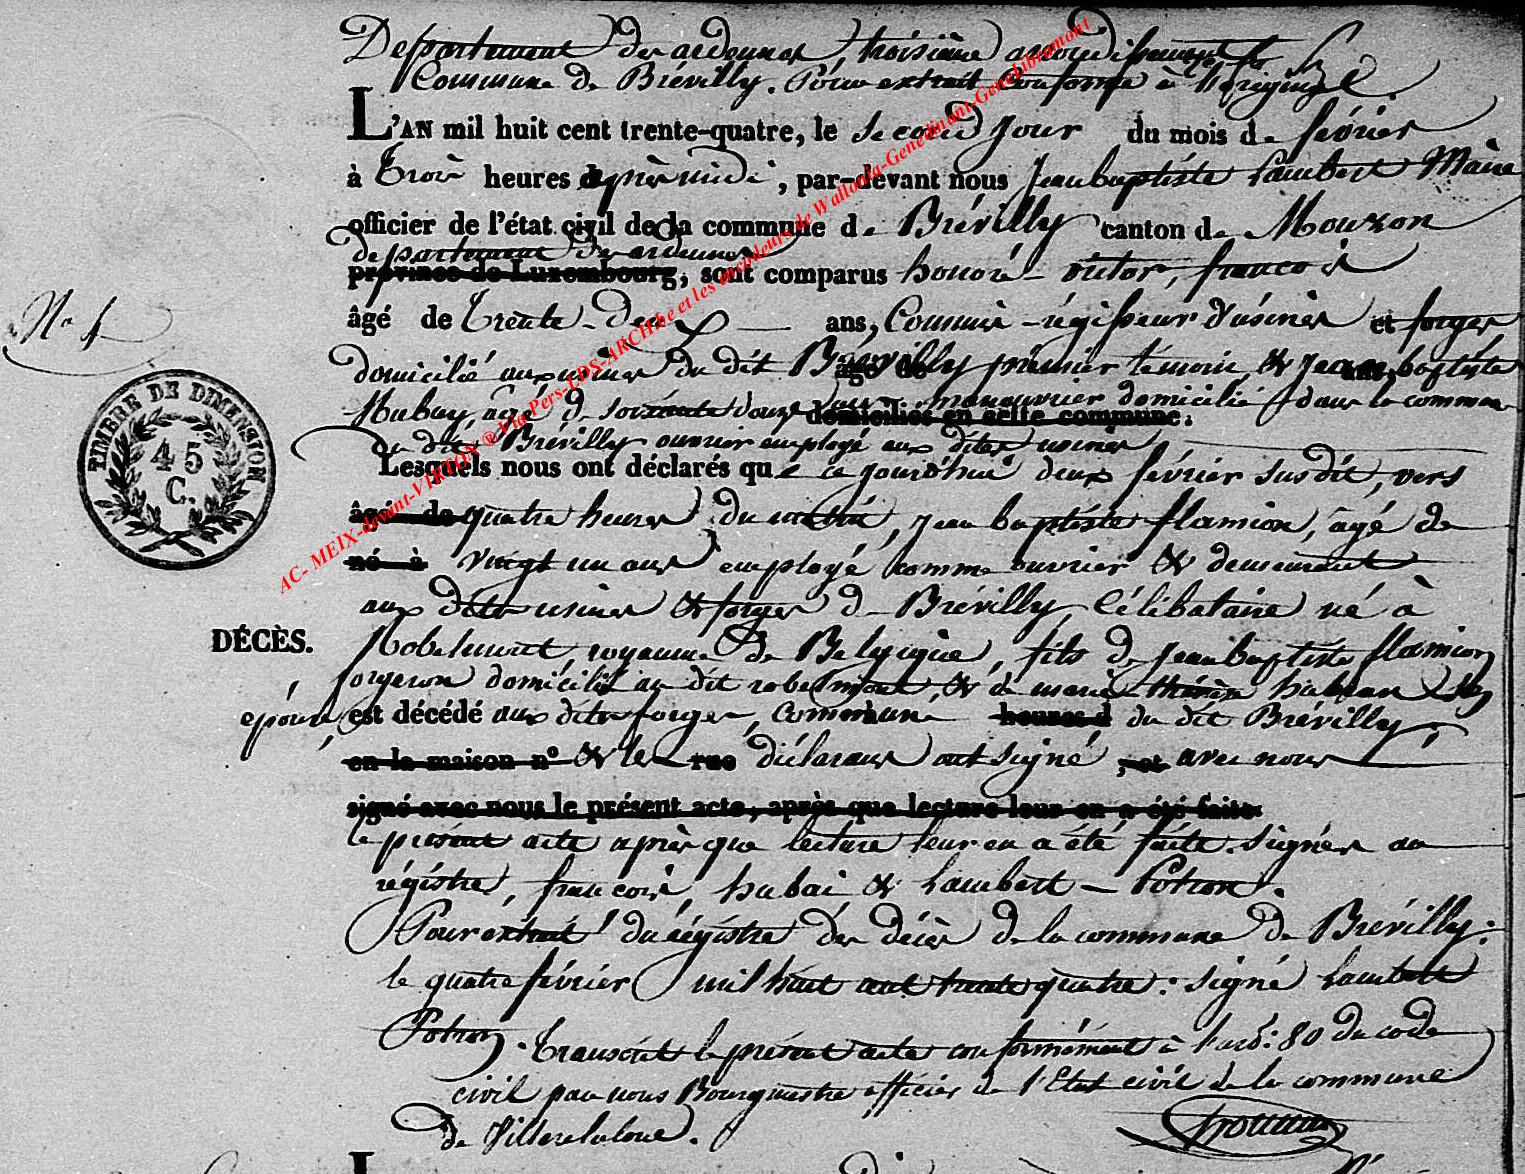 Département des ardennes, troisième arrondissement
Commune de Brévilly. Pour extrait conforme à l'original
L'AN mil huit cent trente-quatre, le second jour du mois de février
à trois heures après midi, par-devant nous Jean baptiste Lambert Maire
officier de l'état civil de la commune de Brévilly canton de Mouzon
département des ardennes
province de Luxembourg, sont comparus honoré victor, francois
âgé de trente-deux ans, Commis-régisseur d'usines et forges
domicilié aux usines du dit Brévilly premier témoin & Jean baptiste
Hubay, âgé de soixante douze ans, manouvrier domicilié dans la commune
domiciliés en cette commune.
du dit Brévilly ouvrier employé aux dites usines
Lesquels nous ont déclarés que ce jourd'hui deux février susdit, vers
âgé de quatre heures du matin, jean baptiste flamion, âgé de
né à vingt un ans employé comme ouvrier & demeurant
aux dites usines & forges de Brévilly célibataire né à
DÉCÈS.
Robelmont royaume de Belgique, fils de Jean baptiste flamion
forgeron domicilié au dit robelmont, & de marie thérèse
épouse, est décédé aux dites forges, commune heures d du dit Brévilly
en la maison n° & les rue déclarans ont signé, et avec nous
signé avec nous le présent acte, après que lecture leur en a été faite.
le présent acte après que lecture leur en a été faite. signés au
régistre, francois, hubai & Lambert - Potron.
Pour extrait du régistre des décès de la commune de Brévilly.
le quatre février mil huit cent trente quatre: signé Lambert
Potron. transcrit le présent acte conformément à l'art: 80 du code
civil par nous Bourguestre officier de l'Etat civil de la commune
de Villers laloue.
N° 4
TIMBRE DE DIMENSION
45
C.
AC- MEIX-devant-VIRTON ® Via Pers-LDS-ARCH.be et les encodeurs de Wallonia-Genedinant-Genelibramont